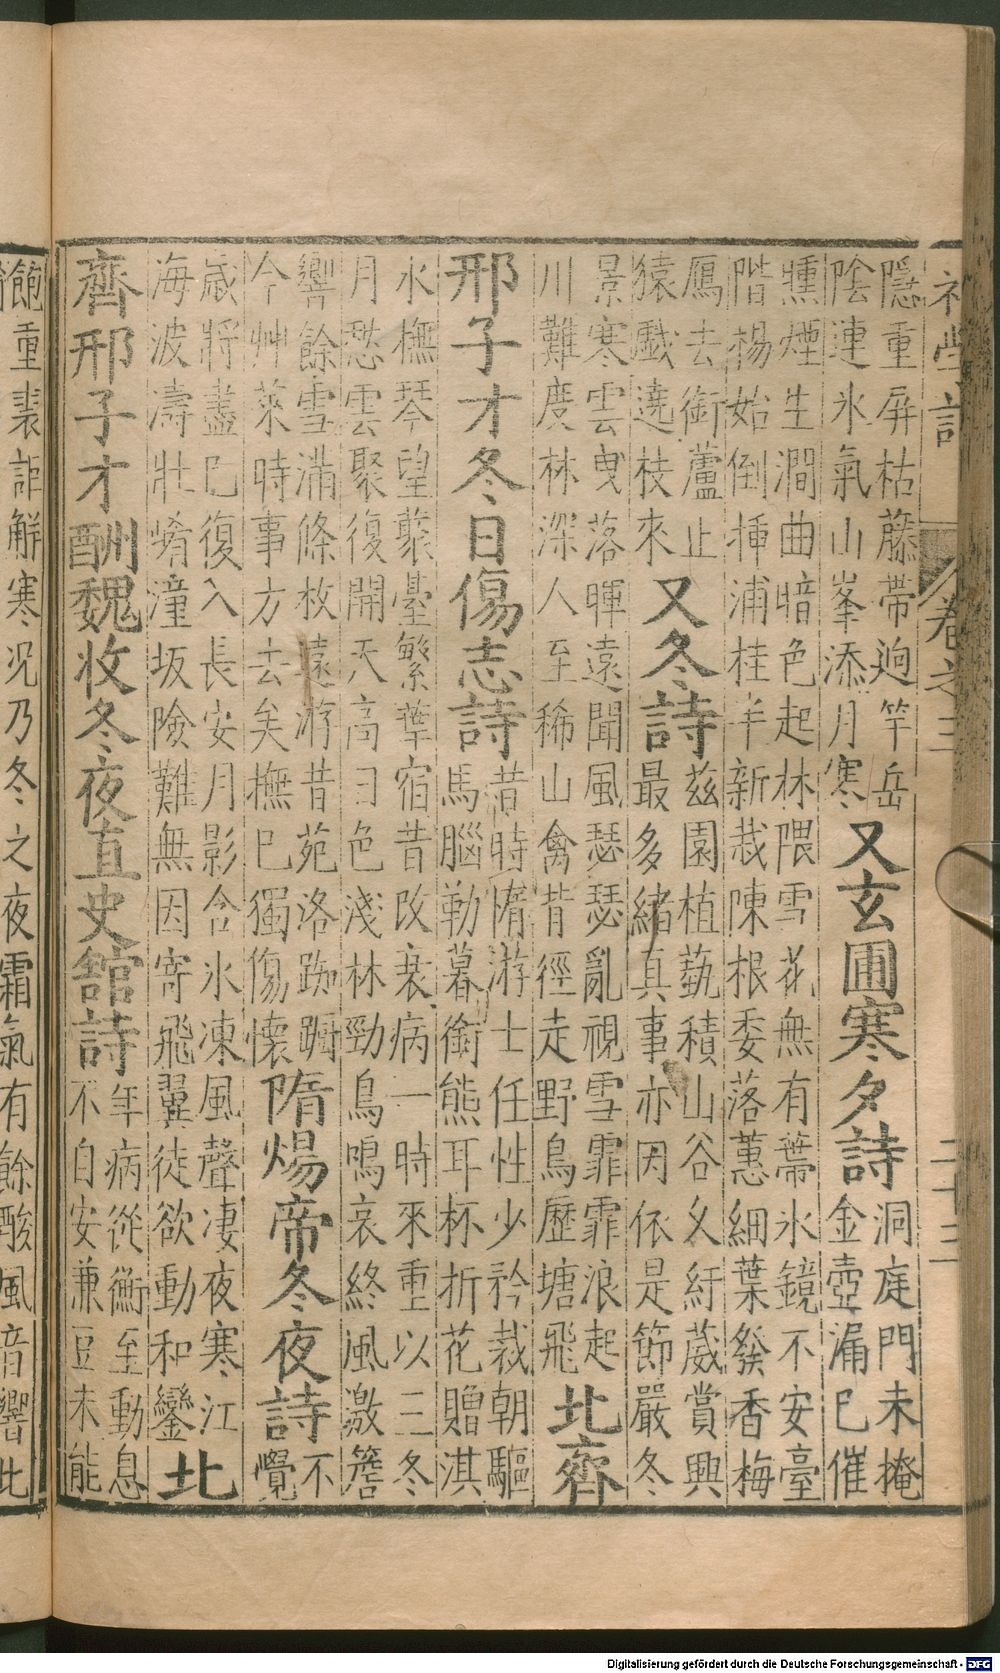 隱重屏枯藤帶迥竿岳
陰連氷氣山峯添月寒
又玄圃寒夕詩
洞庭門未掩
金壺漏巳催
曛煙生澗曲暗色起林隈雪花無有蔕氷鏡不安臺
階楊始倒揷浦桂半新栽陳根委落蕙細葉發香梅
鴈去銜蘆止
猿戲遶枝來
又冬詩
茲園植蓺積山谷久紆葳賞興
最多緒真事亦因依是節嚴冬
景寒雲曳落暉遠聞風瑟瑟亂視雪霏霏浪起
川難度林深人至稀山禽背徑走野鳥歷塘飛
北齊
邢子才冬日傷志詩
昔時惰游士任性少矜裁朝驅
馬腦勒暮銜熊耳杯折花贈淇
水撫琴望藂臺繁華宿昔改衰病一時來重以三冬
月愁雲聚復開天高日色淺林勁鳥鳴哀終風激簷
響餘雪滿條枚遠游昔苑洛踟躕
今艸萊時事方去矣撫巳獨傷懷
隋煬帝冬夜詩
不
覺
歲將盡巳復入長安月影含氷凍風聲凄夜寒江
海波濤壯崤潼坂險難無因寄飛翼徒欲動和鑾
北
齊邢子才酬魏收冬夜直史館詩
年病從衡至動息
不自安兼豆未能
飽重裘詎解寒况乃冬之夜霜氣有餘酸風音響北
卷之三
二十三
Digitalisierung gefördert durch die Deutsche Forschungsgemeinschaft - DFG